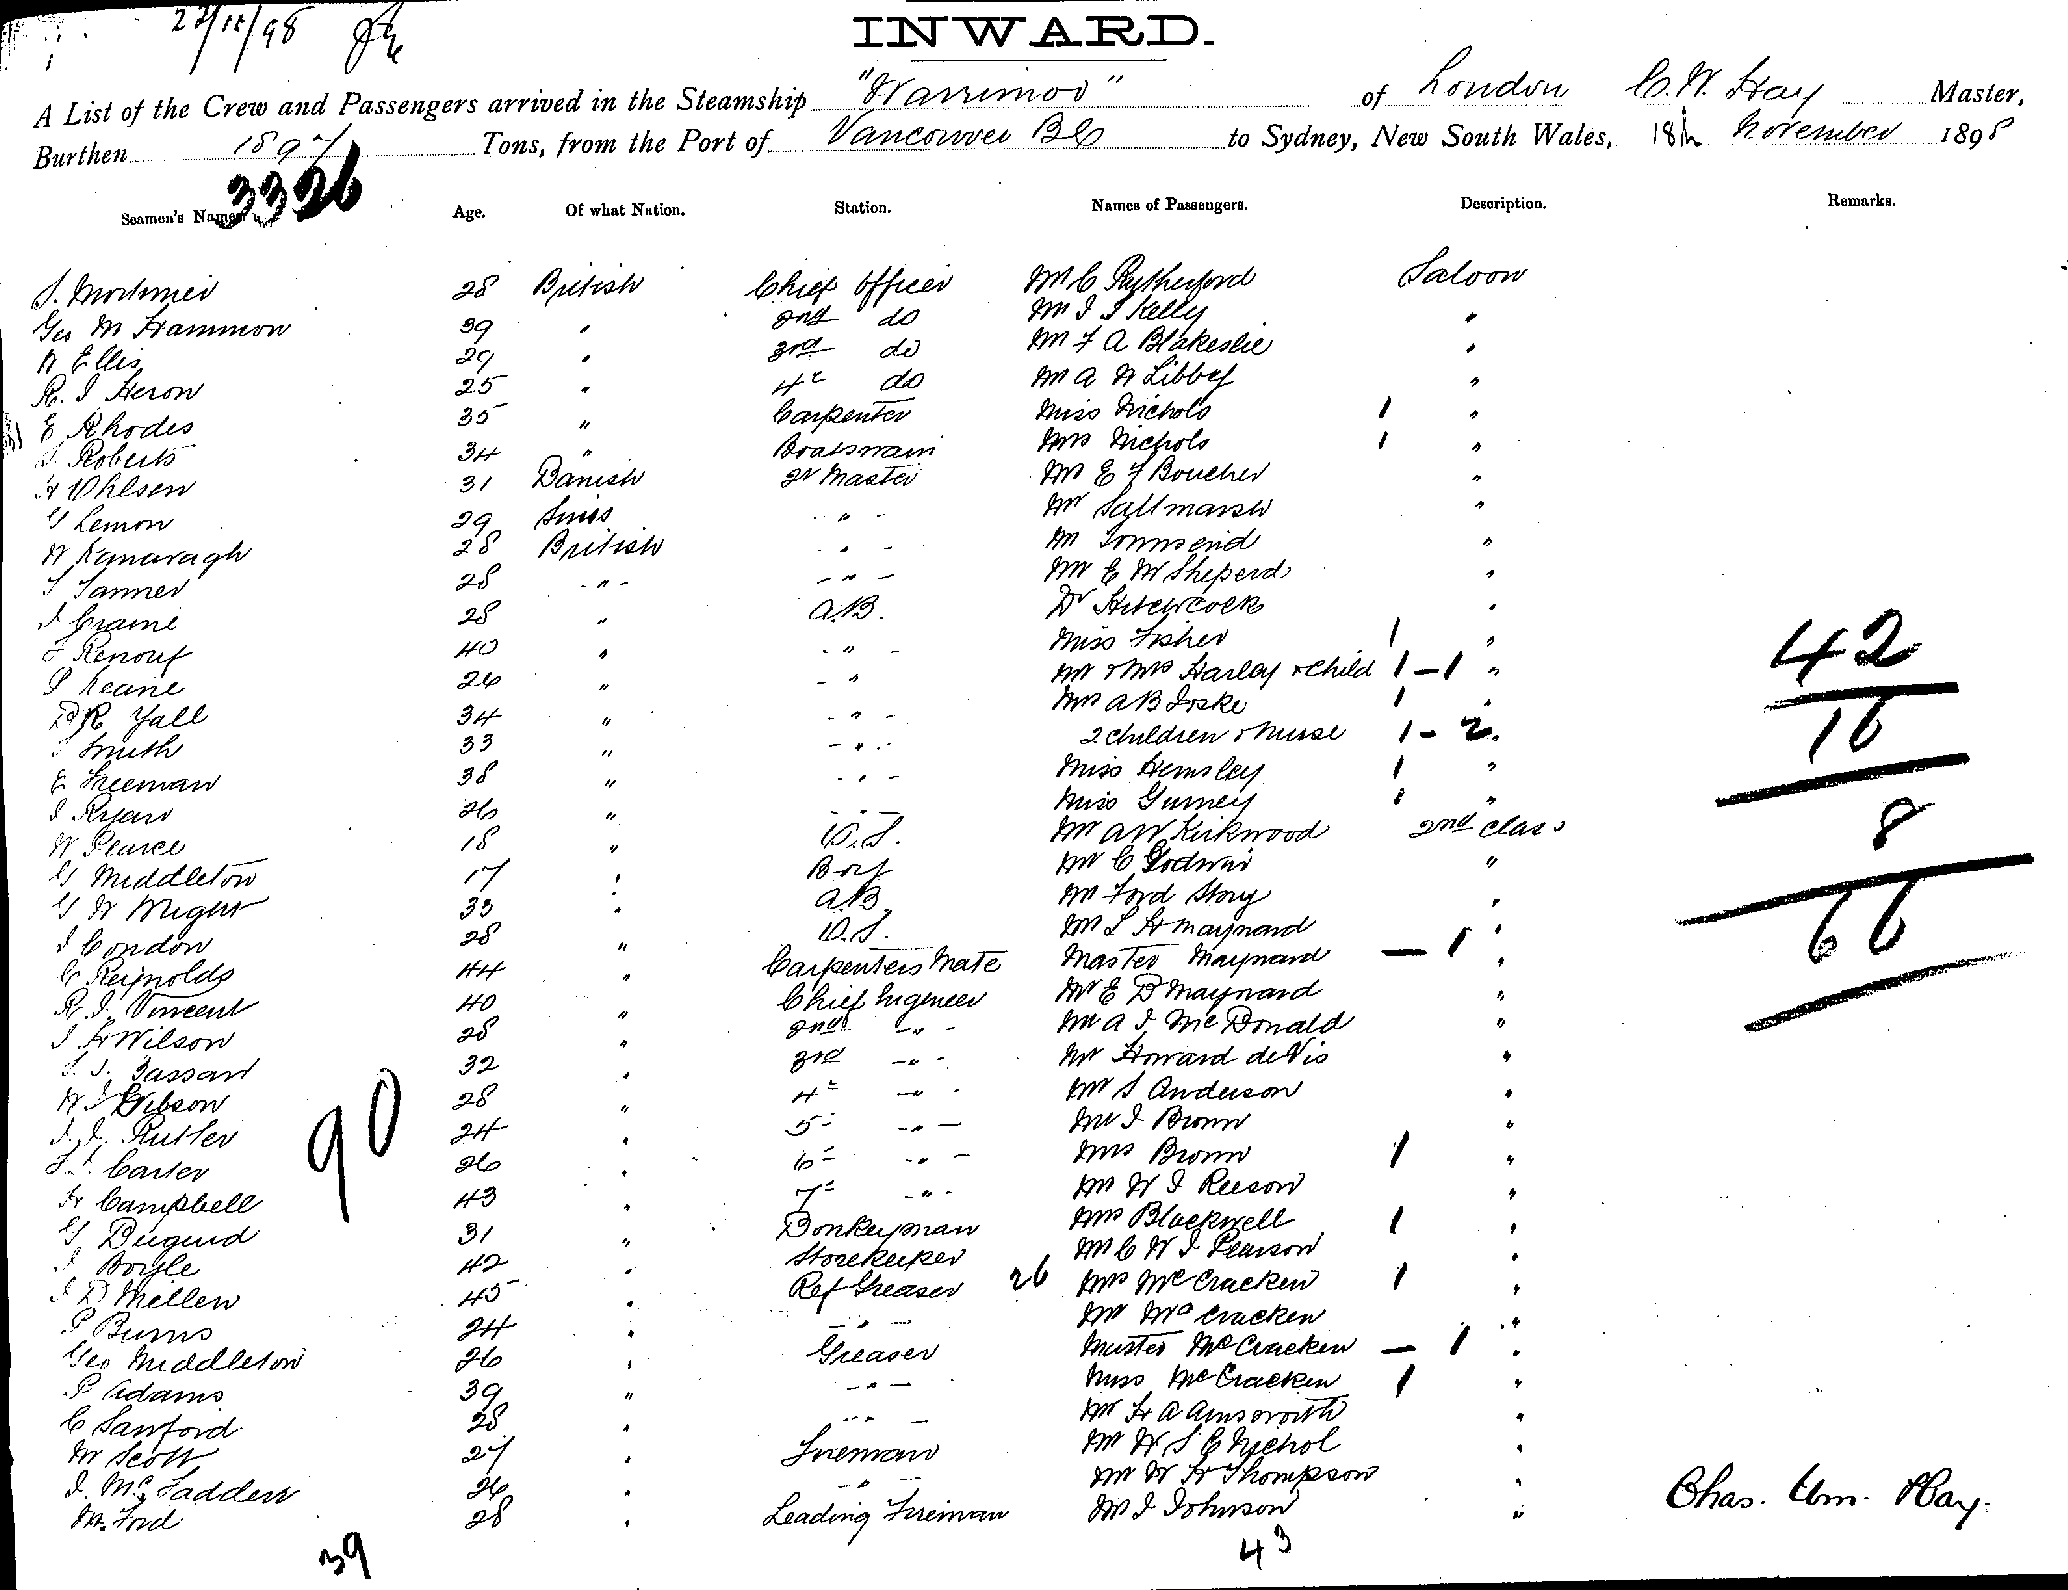 27/11/98
INWARD.
A List of the Crew and Passengers arrived in the Steamship "Warrimoo" of London C. W. Hay Master,
Burthen 1897 Tons, from the Port of Vancouver BC to Sydney, New South Wales, 18th November 1898
3326
Seamen's Names Age. Of what Nation. Station. Names of Passengers. Description. Remarks.
S. Mortimer 28 British Chief Officer Mr C Rutherford Saloon
Geo M Hammon 39 " 2nd do Mr J J Kelly "
W Ellis 29 " 3rd do Mr F A Blakeslie "
R. J Heron 25 " 4th do Mr A W Libbey "
E Rhodes 35 " Carpenter Miss Nichols 1 "
Roberts 34 " Boatswain Mrs Nichols 1 "
H Ohlsen 31 Danish Qr Master Mr E F Boucher "
G Lemon 29 Swiss " Mr Saltmarsh "
W Kanavagh 28 British " Mr Townsend "
T Tanner 28 " " Mr E W Sheperd "
J Craine 28 " A.B. Dr Hitchcock "
Renouf 40 " " Miss Fisher 1 "
P Keane 26 " " Mr & Mrs Harley & Child 1 - 1 "
D R Yall 34 " " Mrs A B Joske 1 "
Smith 33 " " 2 Children & Nurse 1 - 2 "
E Freeman 38 " " Miss Hemsley 1 "
J Ryan 26 " " Miss Gurney 1 "
W Pearce 18 " O.S. Mr A W Kirkwood 2nd Class
G Middleton 17 " Boy Mr C Godwin "
G W Wright 33 " A.B Mr Ford Story "
J Condon 28 " O.S. Mr S H Maynard "
C Reynolds 44 " Carpenters Mate Master Maynard - 1 "
R. J. Vincent 40 " Chief Engineer Mr E D Maynard "
J H Wilson 28 " 2nd " Mr A J McDonald "
Zassan 32 " 3rd " Mr Howard deVis "
W J Gibson 28 " 4th " Mr S Anderson "
J. J. Rutler 24 " 5th " Mr J Brown "
Carter 26 " 6th " Mrs Brown 1 "
H Campbell 43 " 7th " Mr W J Reeson "
G Duguid 31 " Donkeyman Mrs Blackwell 1 "
J Boyle 42 " Storekeeper Mr C W J Pearson "
J D Mellen 45 " Ref Greaser 26 Mrs McCracken 1 "
P Burns 24 " " Mr McCracken "
Geo Middleton 26 " Greaser Master McCracken - 1 "
P Adams 39 " " Miss McCracken 1 "
C Sanford 28 " " Mr H A Ainsworth "
W Scott 27 " Fireman Mr W S C Nichol "
J. McFadden 26 " " Mr W H Thompson "
W. Ford 28 " Leading Fireman Mr J Johnson "
39
43
90
42
16
8
66
Chas. Wm. Hay.